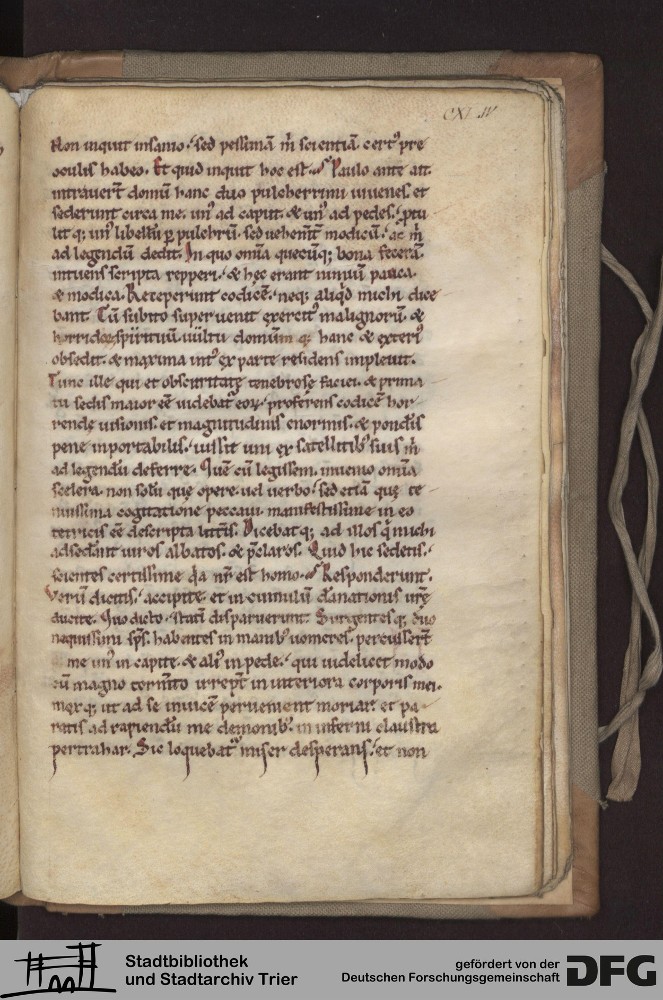 CXLIV
Non inquit insanio. sed pessimā m̄ scientiā certꝰ pre
oculis habeo. Et quid inquit hoc est. Paulo ante ait.
intraver̄t domū hanc duo pulcherrimi iuvenes. et
sederunt circa me. unꝰ ad caput. & unꝰ ad pedes. ꝓtu
lit q; unꝰ libellū ꝑ pulchrū. sed vehem̄t modicū. ac m̄
ad legendū dedit. In quo om̄ia quecūq; bona fecerā.
intuens scripta repperi. & hęc erant nimiū pauca.
& modica. Receperunt codicē. neq; aliqd michi dice
bant. Tū subito supervenit exercitꝰ malignorū &
horridoꝝ spirituū vultu domūm q; hanc & exteriꝰ
obsedit. & maxima intꝰ ex parte residens implevit.
Tunc ille qui et obscuritate tenebrose faciei. & prima
tu sedis maior eē videbat eoꝝ. proferens codicē hor
rendę visionis. et magnitudinis enormis. & pond̄is
pene inportabilis. iussit uni ex satellitibꝰ suis m̄
ad legendū deferre. Quē cū legissem. invenio om̄ia
scelera. non solū quę opere vel verbo. sed etiā quę te
nuissima cogitatione peccavi manifestissime in eo
tetricis eē descripta litt̄is. Dicebat q; ad illos q̄ michi
adsed̄ant viros albatos. & p̄claros. Quid hic sedetis.
scientes certissime qa nr̄ est homo. Responderunt.
Verū dicitis. accipite. et in cumulū dānationis vr̄ę
ducite. Quo dicto. statī disparuerunt. Surgentes q; duo
nequissimi sp̄s. habentes in manibꝰ vomeres. percusser̄t
me unꝰ in capite. & aliꝰ in pede. qui videlicet modo
cū magno torm̄to irrep̄t in interiora corporis mei.
moxq; ut ad se invicē pervenient moriar. et pa
ratis ad rapiendū me demonibꝰ. in inferni claustra
pertrahar. Sic loquebat miser desperans. et non
Stadtbibliothek
und Stadtarchiv Trier
gefördert von der
Deutschen Forschungsgemeinschaft
DFG